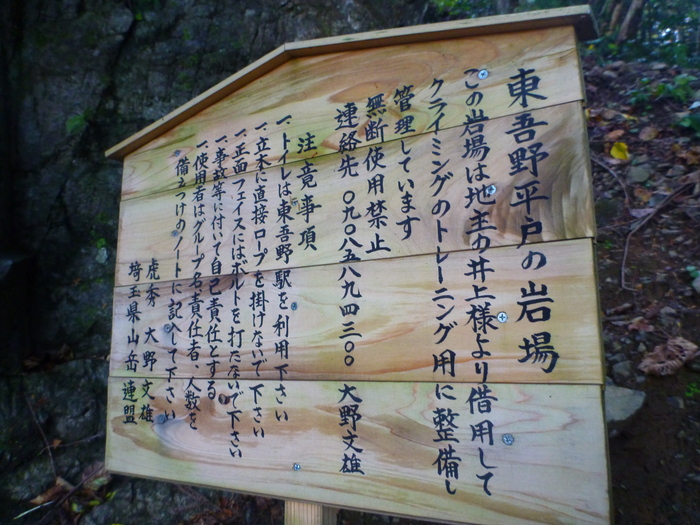 東吾野平戸の岩場
この岩場は地主の井上様より借用して
クライミングのトレーニング用に整備し
管理しています
無断使用禁止
連絡先 〇九〇八五八九四三〇〇 大野文雄
注意事項
一、トイレは東吾野駅を利用下さい
一、立木に直接ロープを掛けないで下さい
一、正面フェイスにはボルトを打たないで下さい
一、事故等に付いて自己責任とする
一、使用者はグループ名責任者、人数を
備えつけのノートに記入して下さい
虎秀 大野文雄
埼玉県山岳連盟